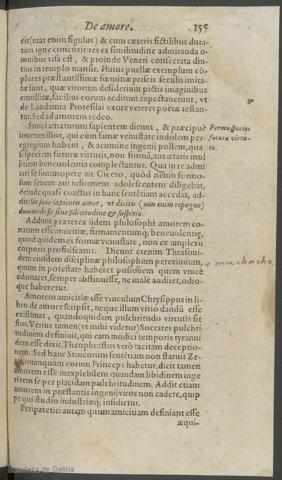 De amore. 155
cit(erat enim figulus) & cum cæteris fictilibus dura-
tam igne concoxit: res ex similitudine admiranda o-
mnibus visa est, & proinde Veneri consecrata diu-
tius in templo mansit. Huius puellæ exemplum cō-
plures præstantissimæ fœminæ priscis seculis imita-
tæ sunt, quæ virorum desiderium pictis imaginibus
emollitæ, facilius eorum reditum expectauerunt, vt
de Laodamia Protesilai vxore veteres poëtæ testan-
tur. Sed ad amorem redeo.
Stoici amaturum sapientem dicunt, & præcipuè
iuuenes illos, qui cùm summæ venustatis indolem
egregiam habent, & acumine ingenij pollent,
speciem futuræ virtutis, non formā, aut ætatis mol
lium beneuolentia complectantur. Qua in re admi
ri se summopere ait Cicero, quòd nemo formo-
sum senem aut informem adolescentem diligebat,
deinde quasi coactus in hanc sentētiam accedat, ad-
dit: Sit sanè sapientis amor, vt dicitis (non enim repugno)
dummodo sit sine solicitudine & suspirio.
Forma species
futuræ virtu-
tis.
Addunt præterea ijdem philosophi amorem co-
natum esse amicitiæ, firmamentumq; beneuolentiæ,
quod quidem ex formæ venustate, non ex amplexu
corporis proficiscatur. Dicunt etenim Thrasoni-
dem eiusdem disciplinæ philosophum peregrinum,
cum in potestate haberet pusionem quem vnicè
adamaret, semper abstinuisse, ne malè audiret, odio-
que haberetur.
muchacho.
Amorem amicitiæ esse vinculum Chrysippus in li-
bro de amore scripsit, neque illum vitio dandū esse
existimat, quandoquidem pulchritudo virtutis sit
flos. Verius tamen (vt mihi videtur) Socrates pulchri
tudinem definiuit, qui eam modici temporis tyranni
dem esse dixit. Theophrastus verò tacitam deceptio-
nem. Sed hanc Stoicorum sentētiam non statuit Ze-
no, quanquam eorum Princeps habetur, dicit tamen
amorem esse inexplebilem quandam libidinem inge
rētem se per placidam pulchritudinem. Addit etiam
amorem in præstantis ingenij viros non cadere, quip
pe qui studio industriæq; insidietur.
Peripatetici autem quum amicitiam definiant esse
æqui-
Biblioteca de Galicia